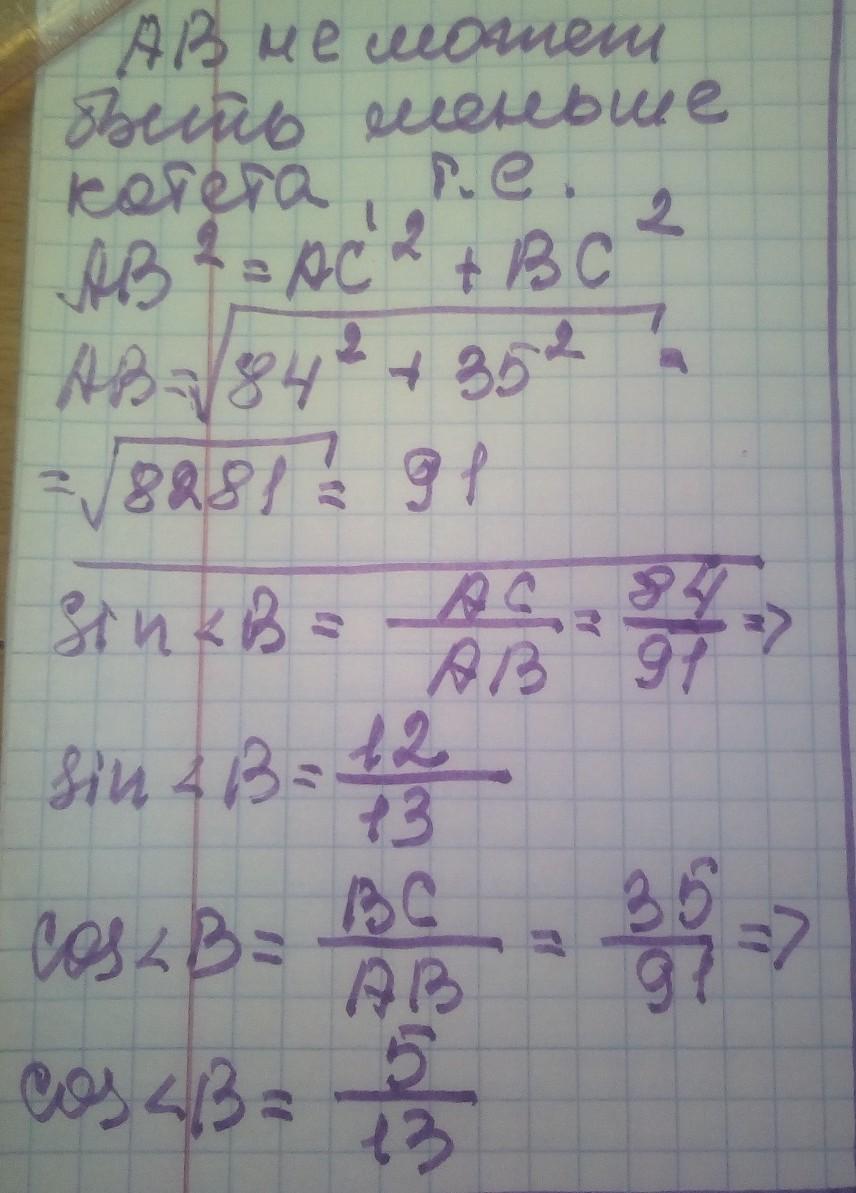 AB не может
быть меньше
катета, т.е.
AB² = AC² + BC²
AB = √84² + 35² =
= √8281 = 91
sin <B = AC/AB = 84/91 =>
sin <B = 12/13
cos <B = BC/AB = 35/91 =>
cos <B = 5/13